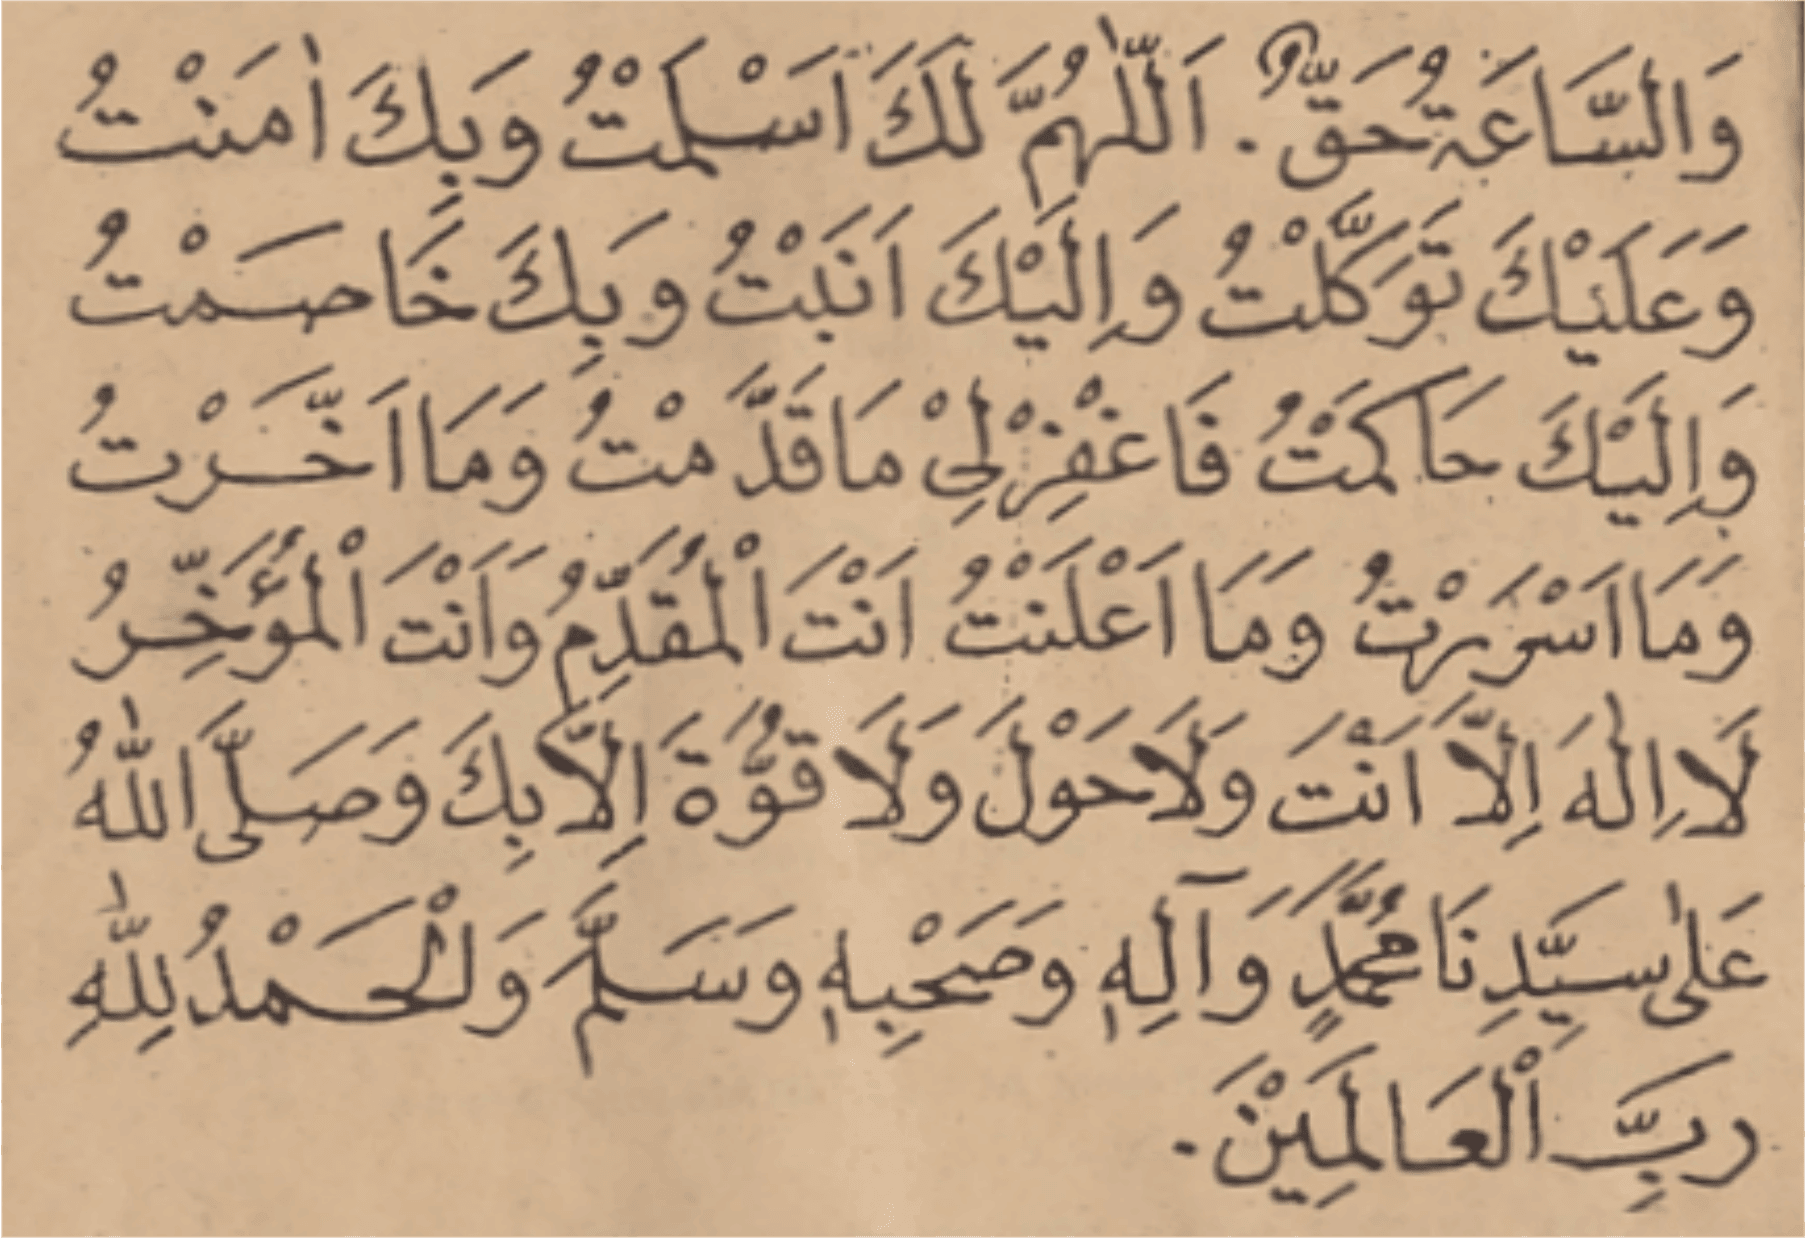 وَالسَّاعَةُ حَقٌّ. اَللّٰهُمَّ لَكَ اَسْلَمْتُ وَبِكَ اٰمَنْتُ
وَعَلَيْكَ تَوَكَّلْتُ وَاِلَيْكَ اَنَبْتُ وَبِكَ خَاصَمْتُ
وَاِلَيْكَ حَاكَمْتُ فَاغْفِرْ لِيْ مَا قَدَّمْتُ وَمَا اَخَّرْتُ
وَمَا اَسْرَرْتُ وَمَا اَعْلَنْتُ اَنْتَ الْمُقَدِّمُ وَاَنْتَ الْمُؤَخِّرُ
لَا اِلٰهَ اِلَّا اَنْتَ وَلَا حَوْلَ وَلَا قُوَّةَ اِلَّا بِكَ وَصَلَّى اللّٰهُ
عَلٰى سَيِّدِنَا مُحَمَّدٍ وَآلِهٖ وَصَحْبِهٖ وَسَلَّمَ وَلْحَمْدُ لِلّٰهِ
رَبِّ الْعَالَمِيْنَ.